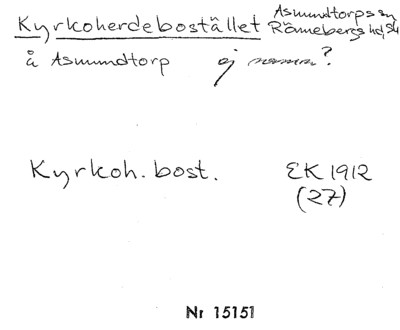 Kyrkoherdebostället Asmundtorps sn
Rönnebergs hd, Sk
å Asmundtorp ej namn?
Kyrkoh. bost. EK 1912
(27)
Nr 15151